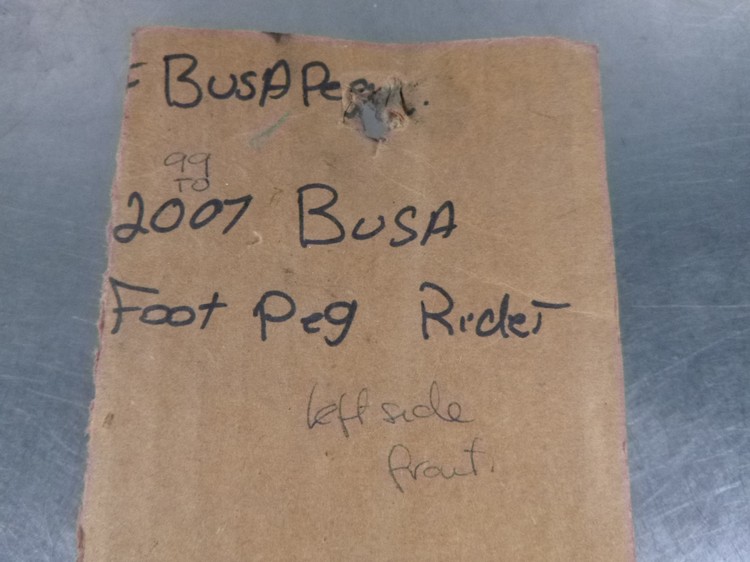 BUSA
99
TO
2007 BUSA
Foot Peg Rider
left side
front.